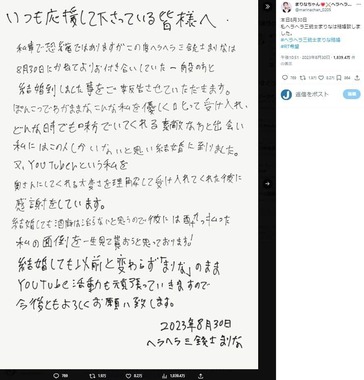 いつも応援して下さっている皆様へ
私事で恐縮ではありますがこの度ヘラヘラ三銃士まりなは
8月30日にかねてよりお付き合いしていた一般の方と
結婚致しました事をご報告させていただきます。
ぽんこつでわがままなこんな私を優しく受け入れ
どんな時でも味方でいてくれる素敵な方と出会い
私にはこの人しかいないと思い結婚に至りました。
又、YouTuberという私を
奥さんにしてくれる大きさを理解して受け入れてくれた彼に
感謝をしています。
結婚しても酒癖は治らないと思うので彼には
私の面倒を一生見て貰おうと思っております!
結婚しても以前と変わらず「まりな」のまま
YouTube活動も頑張っていきますので
今後ともよろしくお願い致します。
2023年8月30日
ヘラヘラ三銃士まりな
まりなちゃん
本日8月30日
私ヘラヘラ三銃士まりなは結婚致しました。
#ヘラヘラ三銃士まりな結婚
返信をポスト